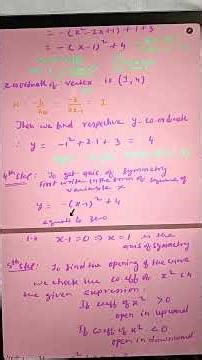 = -(x²-2x+1)+1+3
= -(x-1)²+4
coordinate of vertex is (1,4)
= 1
Then we find respective y coordinate
∴ y = -1²+2·1+3 = 4
4th Step: To get axis of symmetry
first write in the form of square of
variable x
y = -(x-1)²+4
equals to zero
x-1=0 ⇒ x=1 is the
axis of symmetry
5th Step: To find the opening of the curve
we check the coeff of x² in
the given expression
If coeff of x² > 0
open in upward
If coeff of x² < 0
open in downward